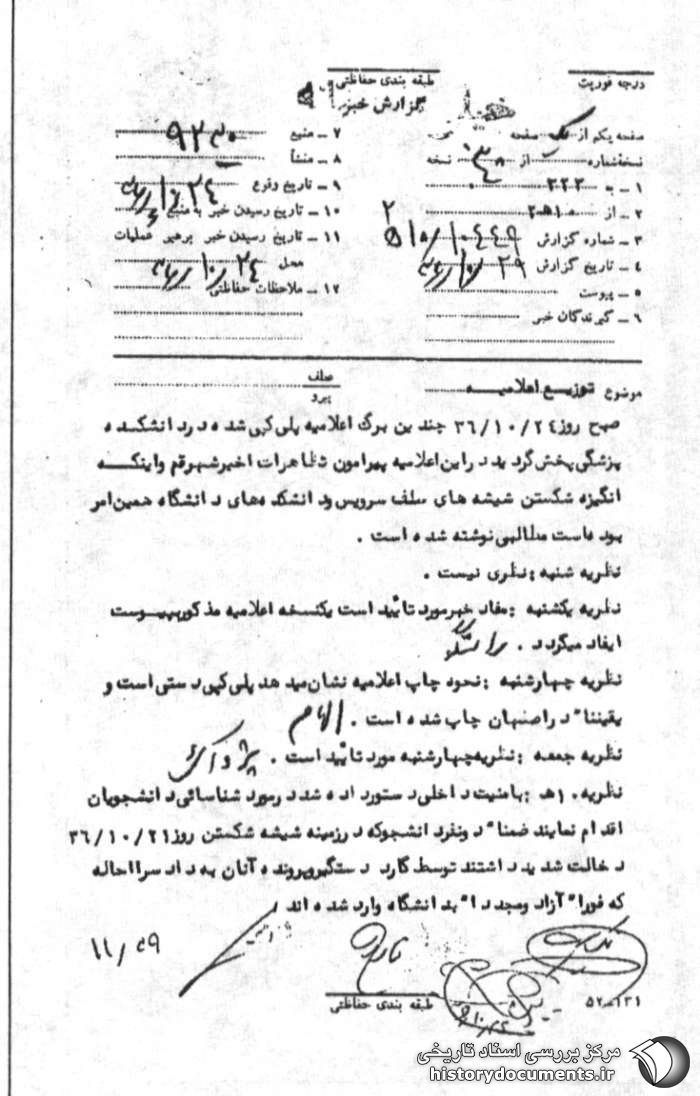 درجه فوریت
طبقه بندی حفاظتی
گزارش خبر
صفحه یکم از یک صفحه
نسخه شماره از نسخه
۱ ـ به ۳۲۲
۲ ـ از
۳ ـ شماره گزارش
۴ ـ تاریخ گزارش
۵ ـ پیوست
۶ ـ گیرندگان خبر
۷ ـ منبع
۸ ـ منشأ
۹ ـ تاریخ وقوع
۱۰ ـ تاریخ رسیدن خبر به منبع
۱۱ ـ تاریخ رسیدن خبر برهبر عملیات
محل
۱۲ ـ ملاحظات حفاظتی
موضوع توزیع اعلامیه
عطف
پیرو
صبح روز ۳۶/۱۰/۲۴ چندین برگ اعلامیه پلی کپی شده در دانشکده
پزشکی پخش گردید در این اعلامیه پیرامون تظاهرات اخیر شهر قم و اینکه
انگیزه شکستن شیشه های سلف سرویس و دانشکده های دانشگاه همین امر
بوده است مطالبی نوشته شده است .
نظریه شنبه : نظری نیست .
نظریه یکشنبه : مفاد خبر مورد تأیید است یکنسخه اعلامیه مذکور بپیوست
ایفاد میگردد .
نظریه چهارشنبه : نحوه چاپ اعلامیه نشان میدهد پلی کپی دستی است و
یقیننا" در اصفهان چاپ شده است . الهام
نظریه جمعه : نظریه چهارشنبه مورد تأیید است .
نظریه ۱۰ ه : بامنیت داخلی دستور داده شد در مورد شناسائی دانشجویان
اقدام نمایند ضمنا" دو نفر دانشجو که در زمینه شیشه شکستن روز ۳۶/۱۰/۲۱
دخالت شدید داشتند توسط گارد دستگیر و پرونده آنان به دادسرا احاله
که فورا" آزاد و مجددا" بدانشگاه وارد شده اند
طبقه بندی حفاظتی
مرکز بررسی اسناد تاریخی
historydocuments.ir